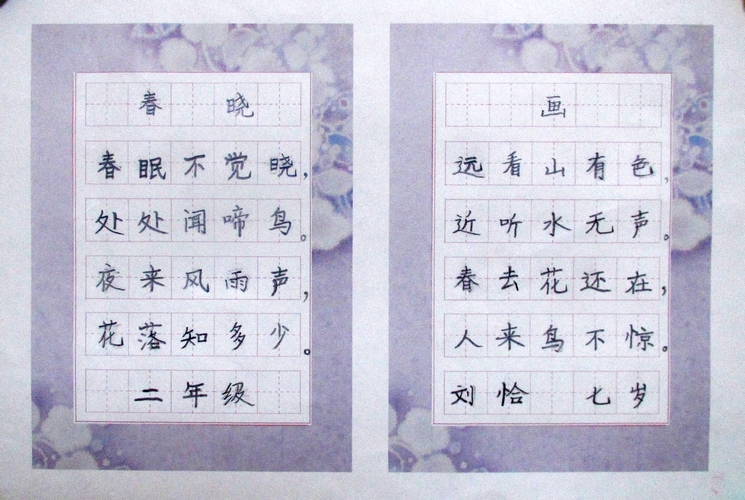 春 晓
春眠不觉晓,
处处闻啼鸟。
夜来风雨声,
花落知多少。
二年级
画
远看山有色,
近听水无声。
春去花还在,
人来鸟不惊。
刘恰 七岁